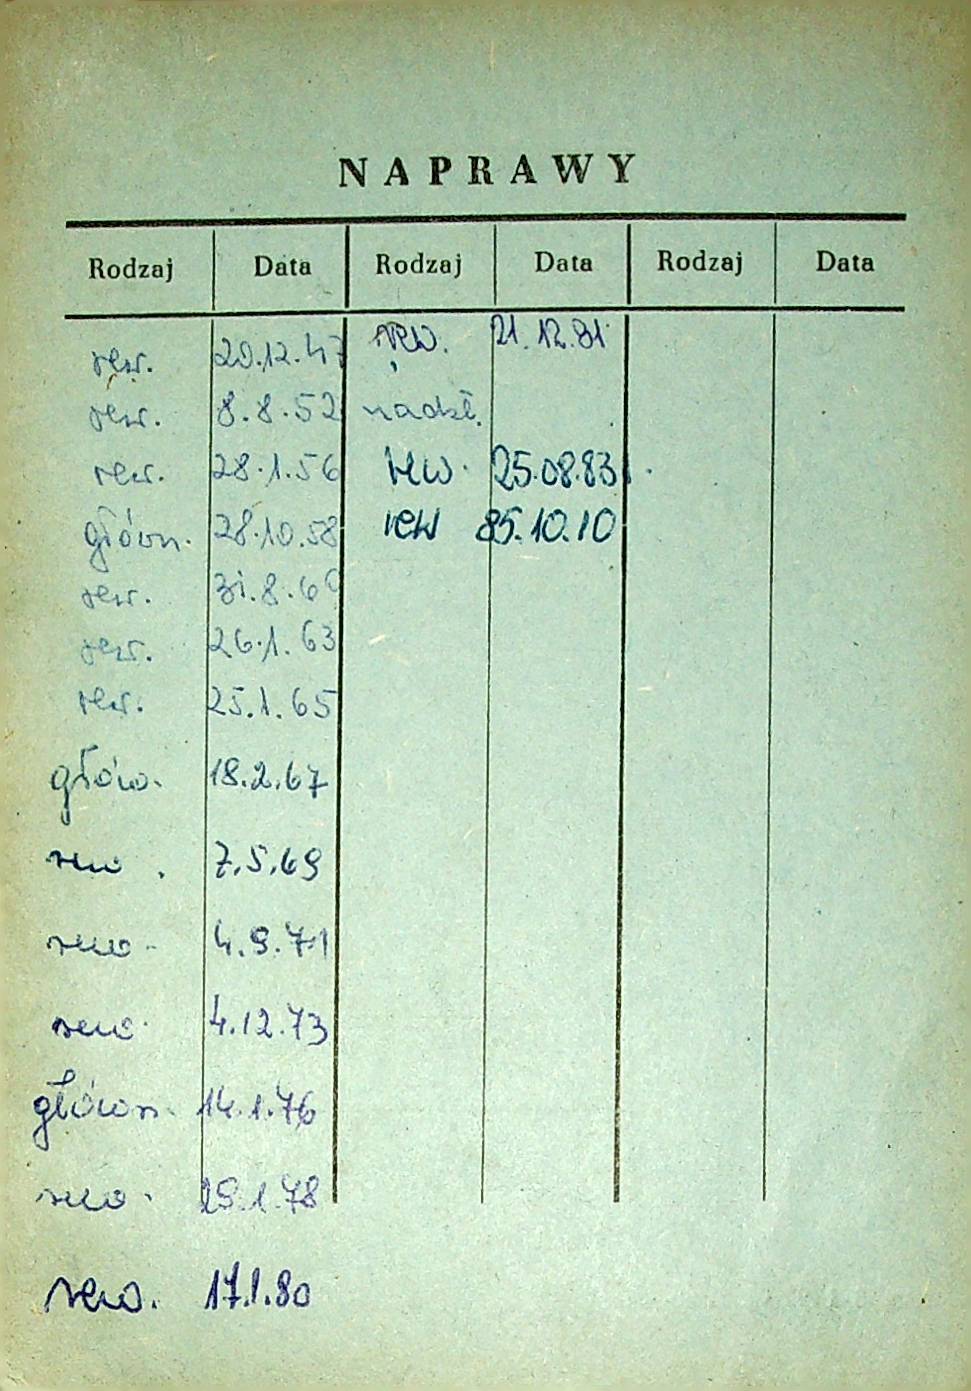 NAPRAWY
Rodzaj Data Rodzaj Data Rodzaj Data
rew. 20.12.47 rew. 21.12.81
rew. 8.8.52 nadzł.
rew. 28.1.56 rew. 25.08.83
główn. 28.10.58 rew 85.10.10
rew. 31.8.60
rew. 26.1.63
rew. 25.1.65
głów. 18.2.67
rew. 7.5.69
rew. 4.9.71
rew. 4.12.73
główn. 14.1.76
rew. 29.1.78
rew. 17.1.80